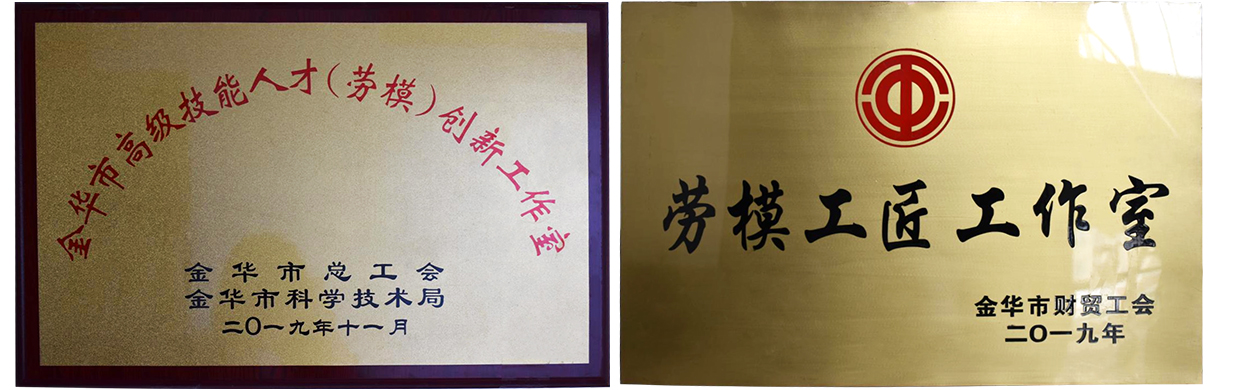 金华市高级技能人才（劳模）创新工作室
金华市总工会
金华市科学技术局
二〇一九年十一月
劳模工匠工作室
金华市财贸工会
二〇一九年